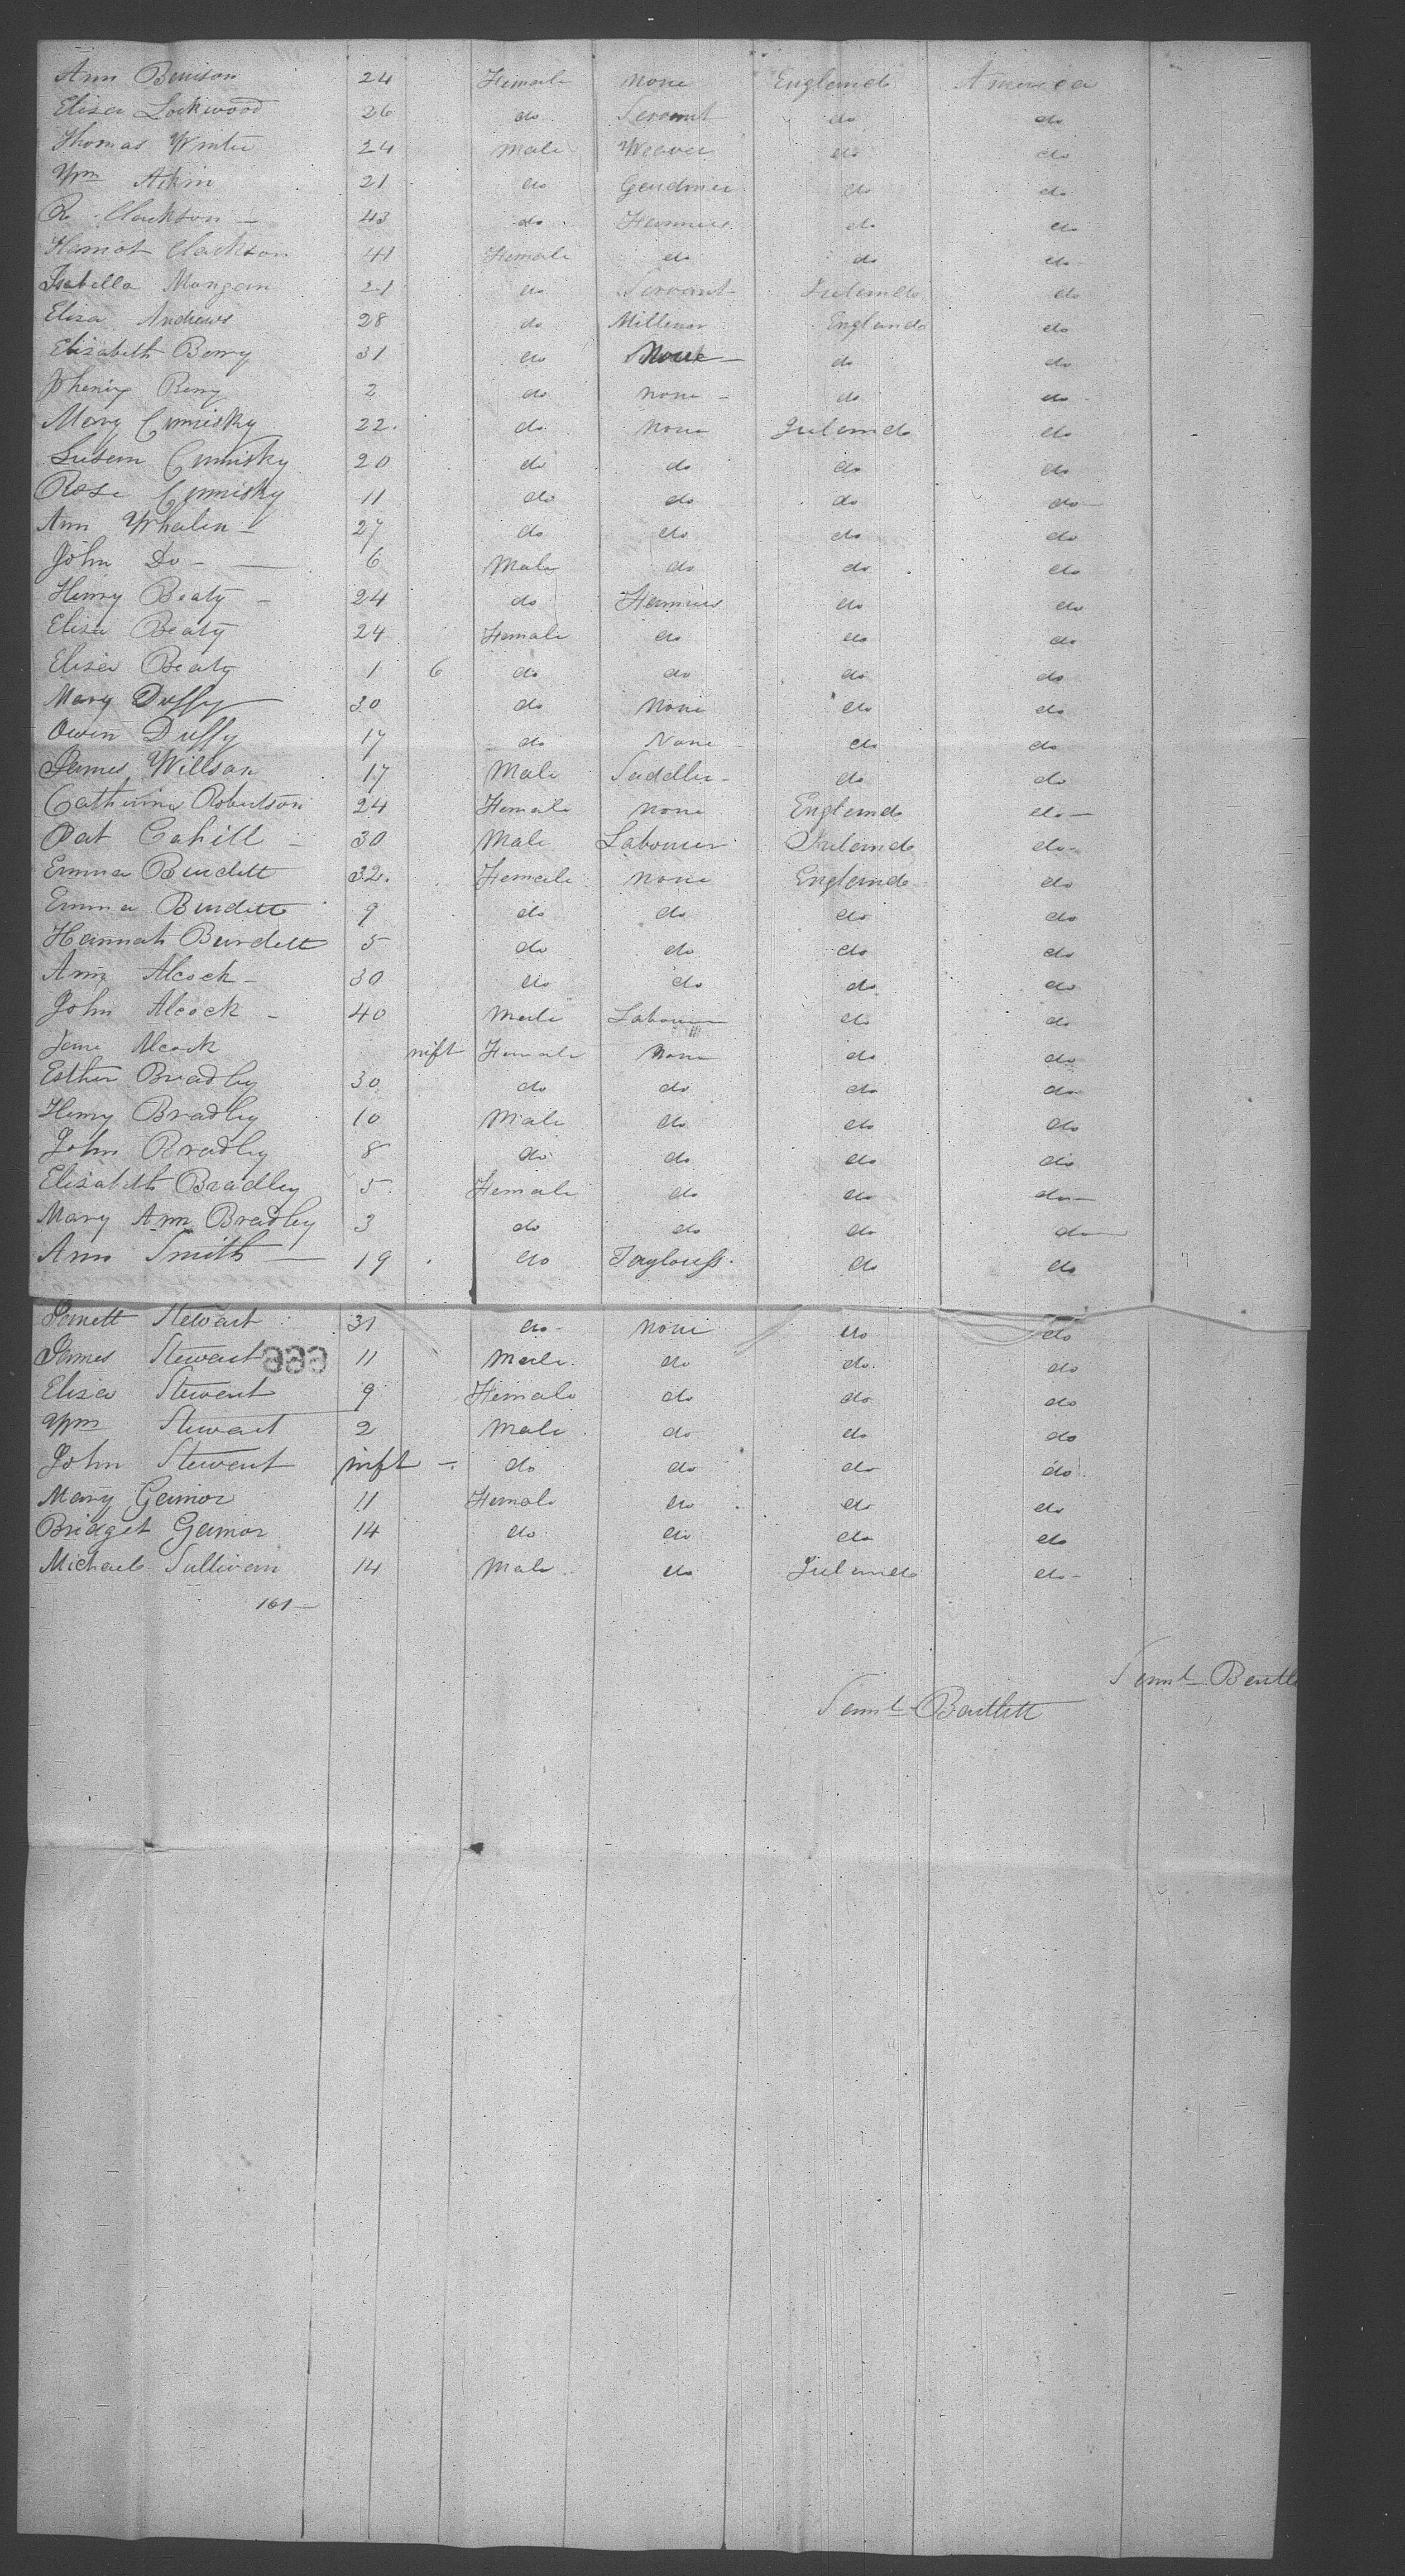 Ann Benison 24 Female None England America
Elisa Lockwood 26 do Servant do do
Thomas Winter 24 Male Weaver do do
Wm Atkin 21 do Gardner do do
R Clarkson — 43 do Farmer do do
Harriot Clarkson 41 Female do do do
Isabella Mangan 21 do Servant Ireland do
Elisa Andrews 28 do Milliner England do
Elisabeth Berry 31 do None — do do
Berry 2 do None — do do
Mary Cumisky 22. do None Ireland do
Susan Cumisky 20 do do do do
Rose Cumisky 11 do do do do
Ann Whalen — 27 do do do do
John Do — 6 Male do do do
Henry Beaty — 24 do Farmer do do
Elisa Beaty 24 Female do do do
Elisa Beaty 1 6 do do do do
Mary Duffy 30 do None do do
Owen Duffy 17 do None do do
James Willson 17 Male Saddler — do do
Catherine Robertson 24 Female None England do —
Pat Cahill — 30 Male Labourer Ireland do
Emma Burdett 32. Female None England do
Emma Burdett 9 do do do do
Hannah Burdett 5 do do do do
Ann Alcock — 30 do do do do
John Alcock — 40 Male Labourer do do
Jane Alcock inft Female None do do
Esther Bradley 30 do do do do
Henry Bradley 10 Male do do do
John Bradley 8 do do do do
Elisabeth Bradley 5 Female do do do —
Mary Ann Bradley 3 do do do do —
Ann Smith — 19 do Taylouss. do do
Stewart 31 do — None do do
James Stewart 11 Male do do do
Elisa Stewart 9 Female do do do
Wm Stewart 2 Male do do do
John Stewart inft — do do do do
Mary Gainor 11 Female do do do
Bridget Gainor 14 do do do do
Michael Sullivan 14 Male do Ireland do —
161 —
Saml Bartl
Saml Bartlett